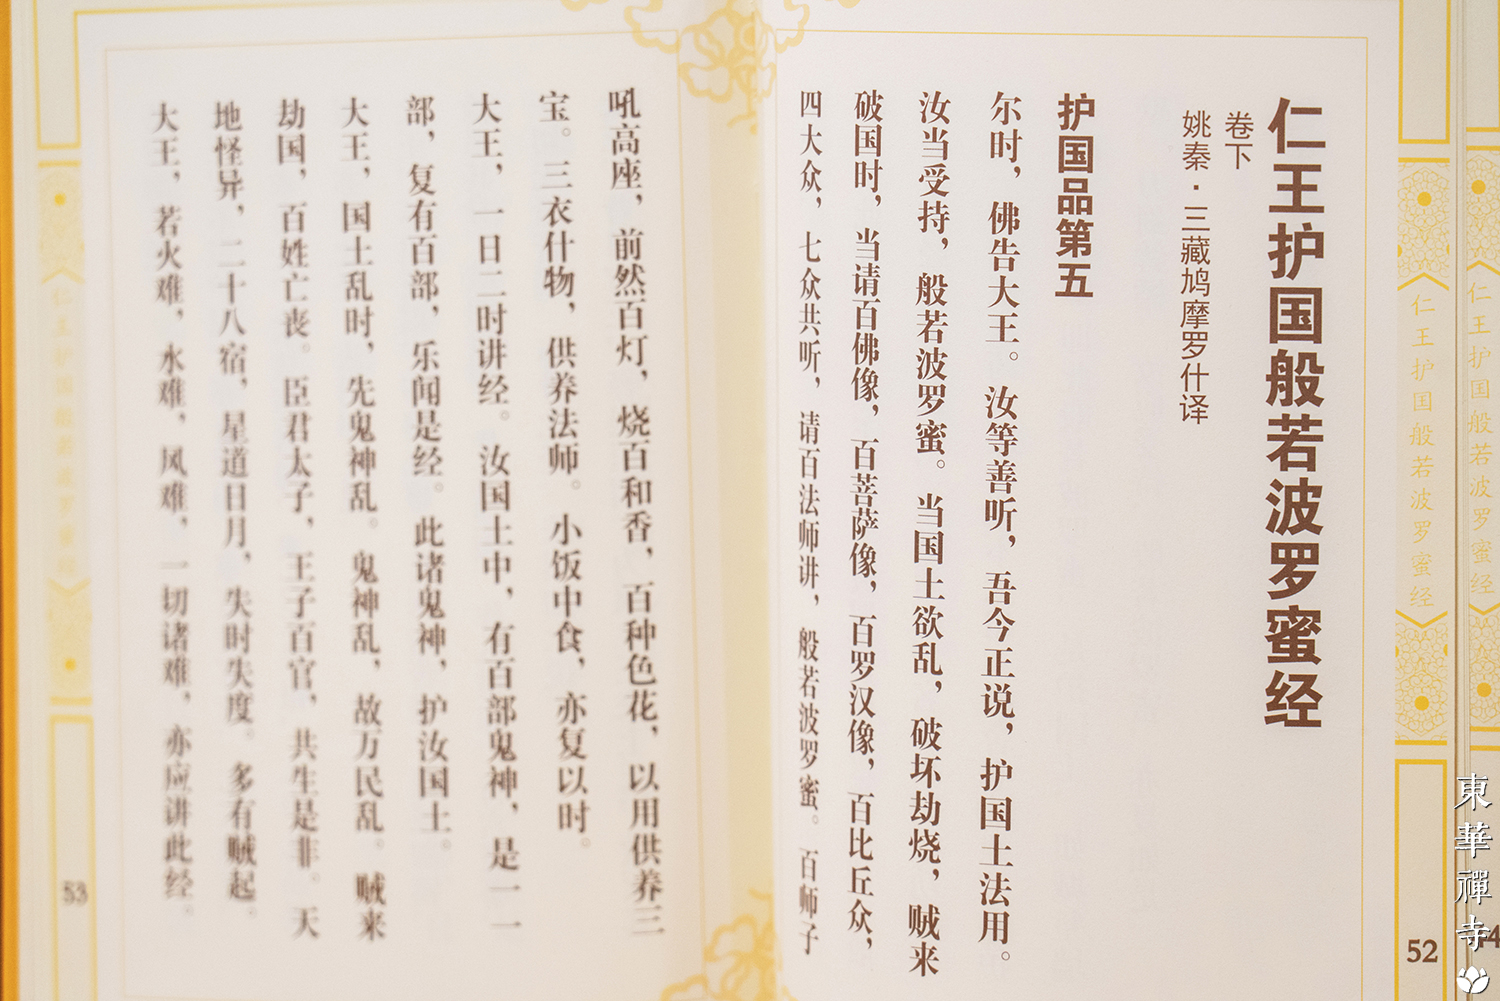 仁王护国般若波罗蜜经
卷下
姚秦·三藏鸠摩罗什译
护国品第五
尔时，佛告大王。汝等善听，吾今正说，护国土法用。
汝当受持，般若波罗蜜。当国土欲乱，破坏劫烧，贼来
破国时，当请百佛像，百菩萨像，百罗汉像，百比丘众，
四大众，七众共听，请百法师讲，般若波罗蜜。百师子
吼高座，前然百灯，烧百和香，百种色花，以用供养三
宝。三衣什物，供养法师。小饭中食，亦复以时。
大王，一日二时讲经。汝国土中，有百部鬼神，是一一
部，复有百部，乐闻是经。此诸鬼神，护汝国土。
大王，国土乱时，先鬼神乱。鬼神乱，故万民乱。贼来
劫国，百姓亡丧。臣君太子，王子百官，共生是非。天
地怪异，二十八宿，星道日月，失时失度。多有贼起。
大王，若火难，水难，风难，一切诸难，亦应讲此经。
仁王护国般若波罗蜜经
52
仁王护国般若波罗蜜经
仁王护国般若波罗蜜经
53
東華禪寺